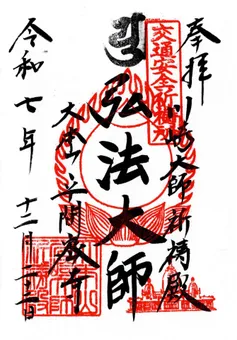 奉拝
川崎大師祈祷殿
交通安全祈祷所
弘法大師
大本山平間教寺
令和七年
十二月二十二日